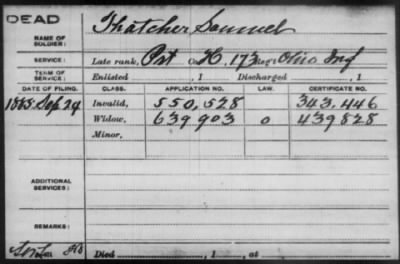 DEAD
NAME OF SOLDIER: Thatcher Samuel
SERVICE: Late rank, Pvt Co. H, 173 Reg't Ohio Inf
TERM OF SERVICE: Enlisted , 1 Discharged , 1
DATE OF FILING. CLASS. APPLICATION NO. LAW. CERTIFICATE NO.
1885 Sep 24 Invalid, 550,528 343,446
Widow, 639,903 0 439828
Minor,
ADDITIONAL SERVICES:
REMARKS:
Died , 1 , at